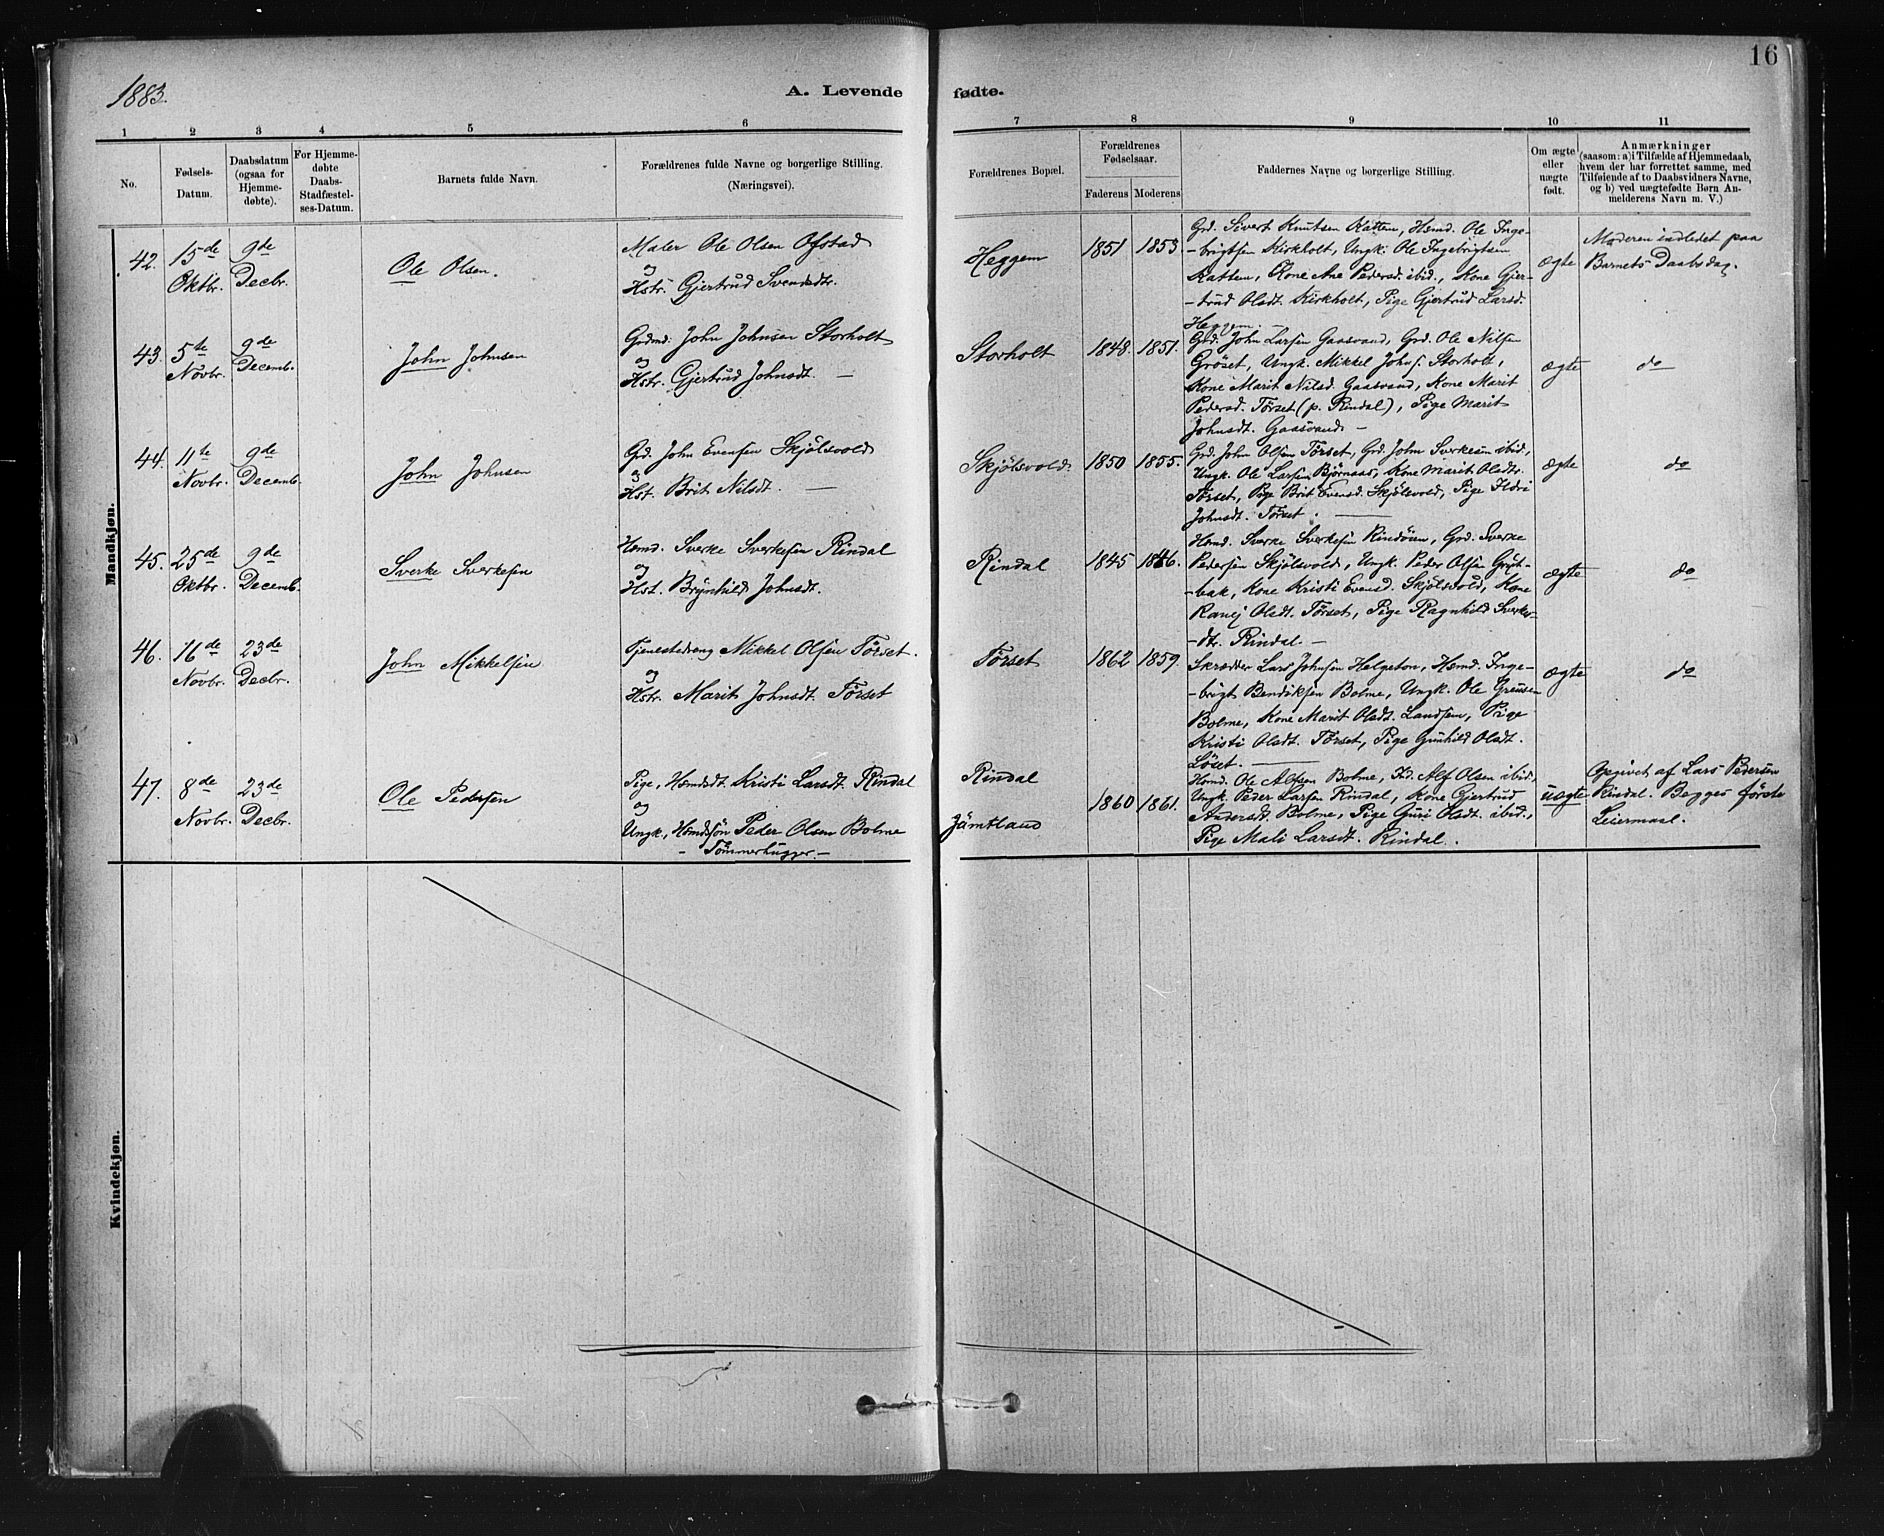 16
1883.
A. Levende fødte.
1 2 3 4 5 6 7 8 9 10 11
No.
Fødsels-
Datum.
Daabsdatum
(ogsaa for
Hjemme-
døbte).
For Hjemme-
døbte
Daabs-
Stadfæstel-
ses-Datum.
Barnets fulde Navn.
Forældrenes fulde Navne og borgerlige Stilling.
(Næringsvei).
Forældrenes Bopæl.
Forældrenes
Fødselsaar.
Faderens Moderens
Faddernes Navne og borgerlige Stilling.
Om ægte
eller
uægte
født.
Anmærkninger
(saasom: a) i Tilfælde af Hjemmedaab,
hvem der har forrettet samme, med
Tilføiende af to Daabsvidners Navne,
og b) ved uægtefødte Børn An-
melderens Navn m. V.)
Mandkjøn.
42.
15de
Oktbr.
9de
Decbr.
Ole Olsen.
Maler Ole Olsen Ofstad
og
Hstr. Gjertrud Svendsdtr.
Heggem
1851 1853
Grd. Sivert Knutsen Ratten, Hemd. Ole Inge-
-brigtsen Kirkholt, Ungk. Ole Ingebrigtsen
Rattem, Kone Ane Pedersd. ibid., Kone Gjer-
-trud Olsdt. Kirkholt, Pige Gjertrud Larsd.
Heggem. —
ægte
Moderen indledet paa
Barnets Daabsdag.
43.
5te
Novbr.
9de
Decemb.
John Johnsen
Grdmd. John Johnsen Storholt
og
Hstr. Gjertrud Johnsdt. —
Storholt
1848. 1851.
Grd. John Larsen Gaasvand, Grd. Ole Nilsen
Grøset, Ungk. Mikkel Johns. Storholt,
Kone Marit Nilsd. Gaasvand, Kone Marit
Pedersd. Tørset (p. Rindal), Pige Marit
Johnsdt. Gaasvand —
ægte
do
44.
11te
Novbr.
9de
Decemb.
John Johnsen
Gd. John Evensen Skjølsvold
og
Hst. Brit Nilsdt. —
Skjølsvold
1850 1855.
Grd. John Olsen Tørset, Grd. John Sverkesen ibid,
Ungk. Ole Larsen Bjørnaas, Kone Marit Olsdtr.
Tørset, Pige Brit Evensd. Skjølsvold, Pige Ildri
Johnsdt. Tørset. —
ægte
do
45.
25de
Oktbr.
9de
Decemb.
Sverke Sverkesen
Hemd. Sverke Sverkesen Rindal
og
Hst. Brynhild Johnsdt.
Rindal
1845 1846.
Hemd. Sverke Sverkesen Rindøien, Grd. Sverke
Pedersen Skjølsvold, Ungk. Peder Olsen Grøt-
-bak, Kone Kristi Evensd. Skjølsvold, Kone
Ranej Olsdt. Tørset, Pige Ragnhild Sverkes-
-dtr. Rindal. —
ægte
do
46.
16de
Novbr.
23de
Decbr.
John Mikkelsen
Tjenestedreng Mikkel Olsen Tørset.
og
Hstr. Marit Johnsdt. Tørset
Tørset
1862 1859.
Skrædder Lars Johnsen Helgeton, Hemd. Inge-
-brigt Bendiksen Bolme, Ungk. Ole
Bolme, Kone Marit Olsdt. Landsem, Pige
Kristi Olsdt. Tørset, Pige Gunhild Olsdt.
Løset. —
ægte
do
47.
8de
Novbr.
23de
Decbr.
Ole Pedersen
Pige, Hemdsdt. Kristi Larsdt. Rindal
og
Ungk., Hemdssøn Peder Olsen Bolme
- Tømmerhugger. -
Rindal
Jämtland
1860 1861.
Hemd. Ole Alfsen Bolme, Ind. Alf Olsen ibid.,
Ungk. Peder Larsen Rindal, Kone Gjertrud
Andersdt. Bolme, Pige Guri Olsdt. ibid.,
Pige Mali Larsdt. Rindal.
uægte
Opgivet af Lars Pedersen
Rindal. Begges første
Leiermaal.
Kvindekjøn.